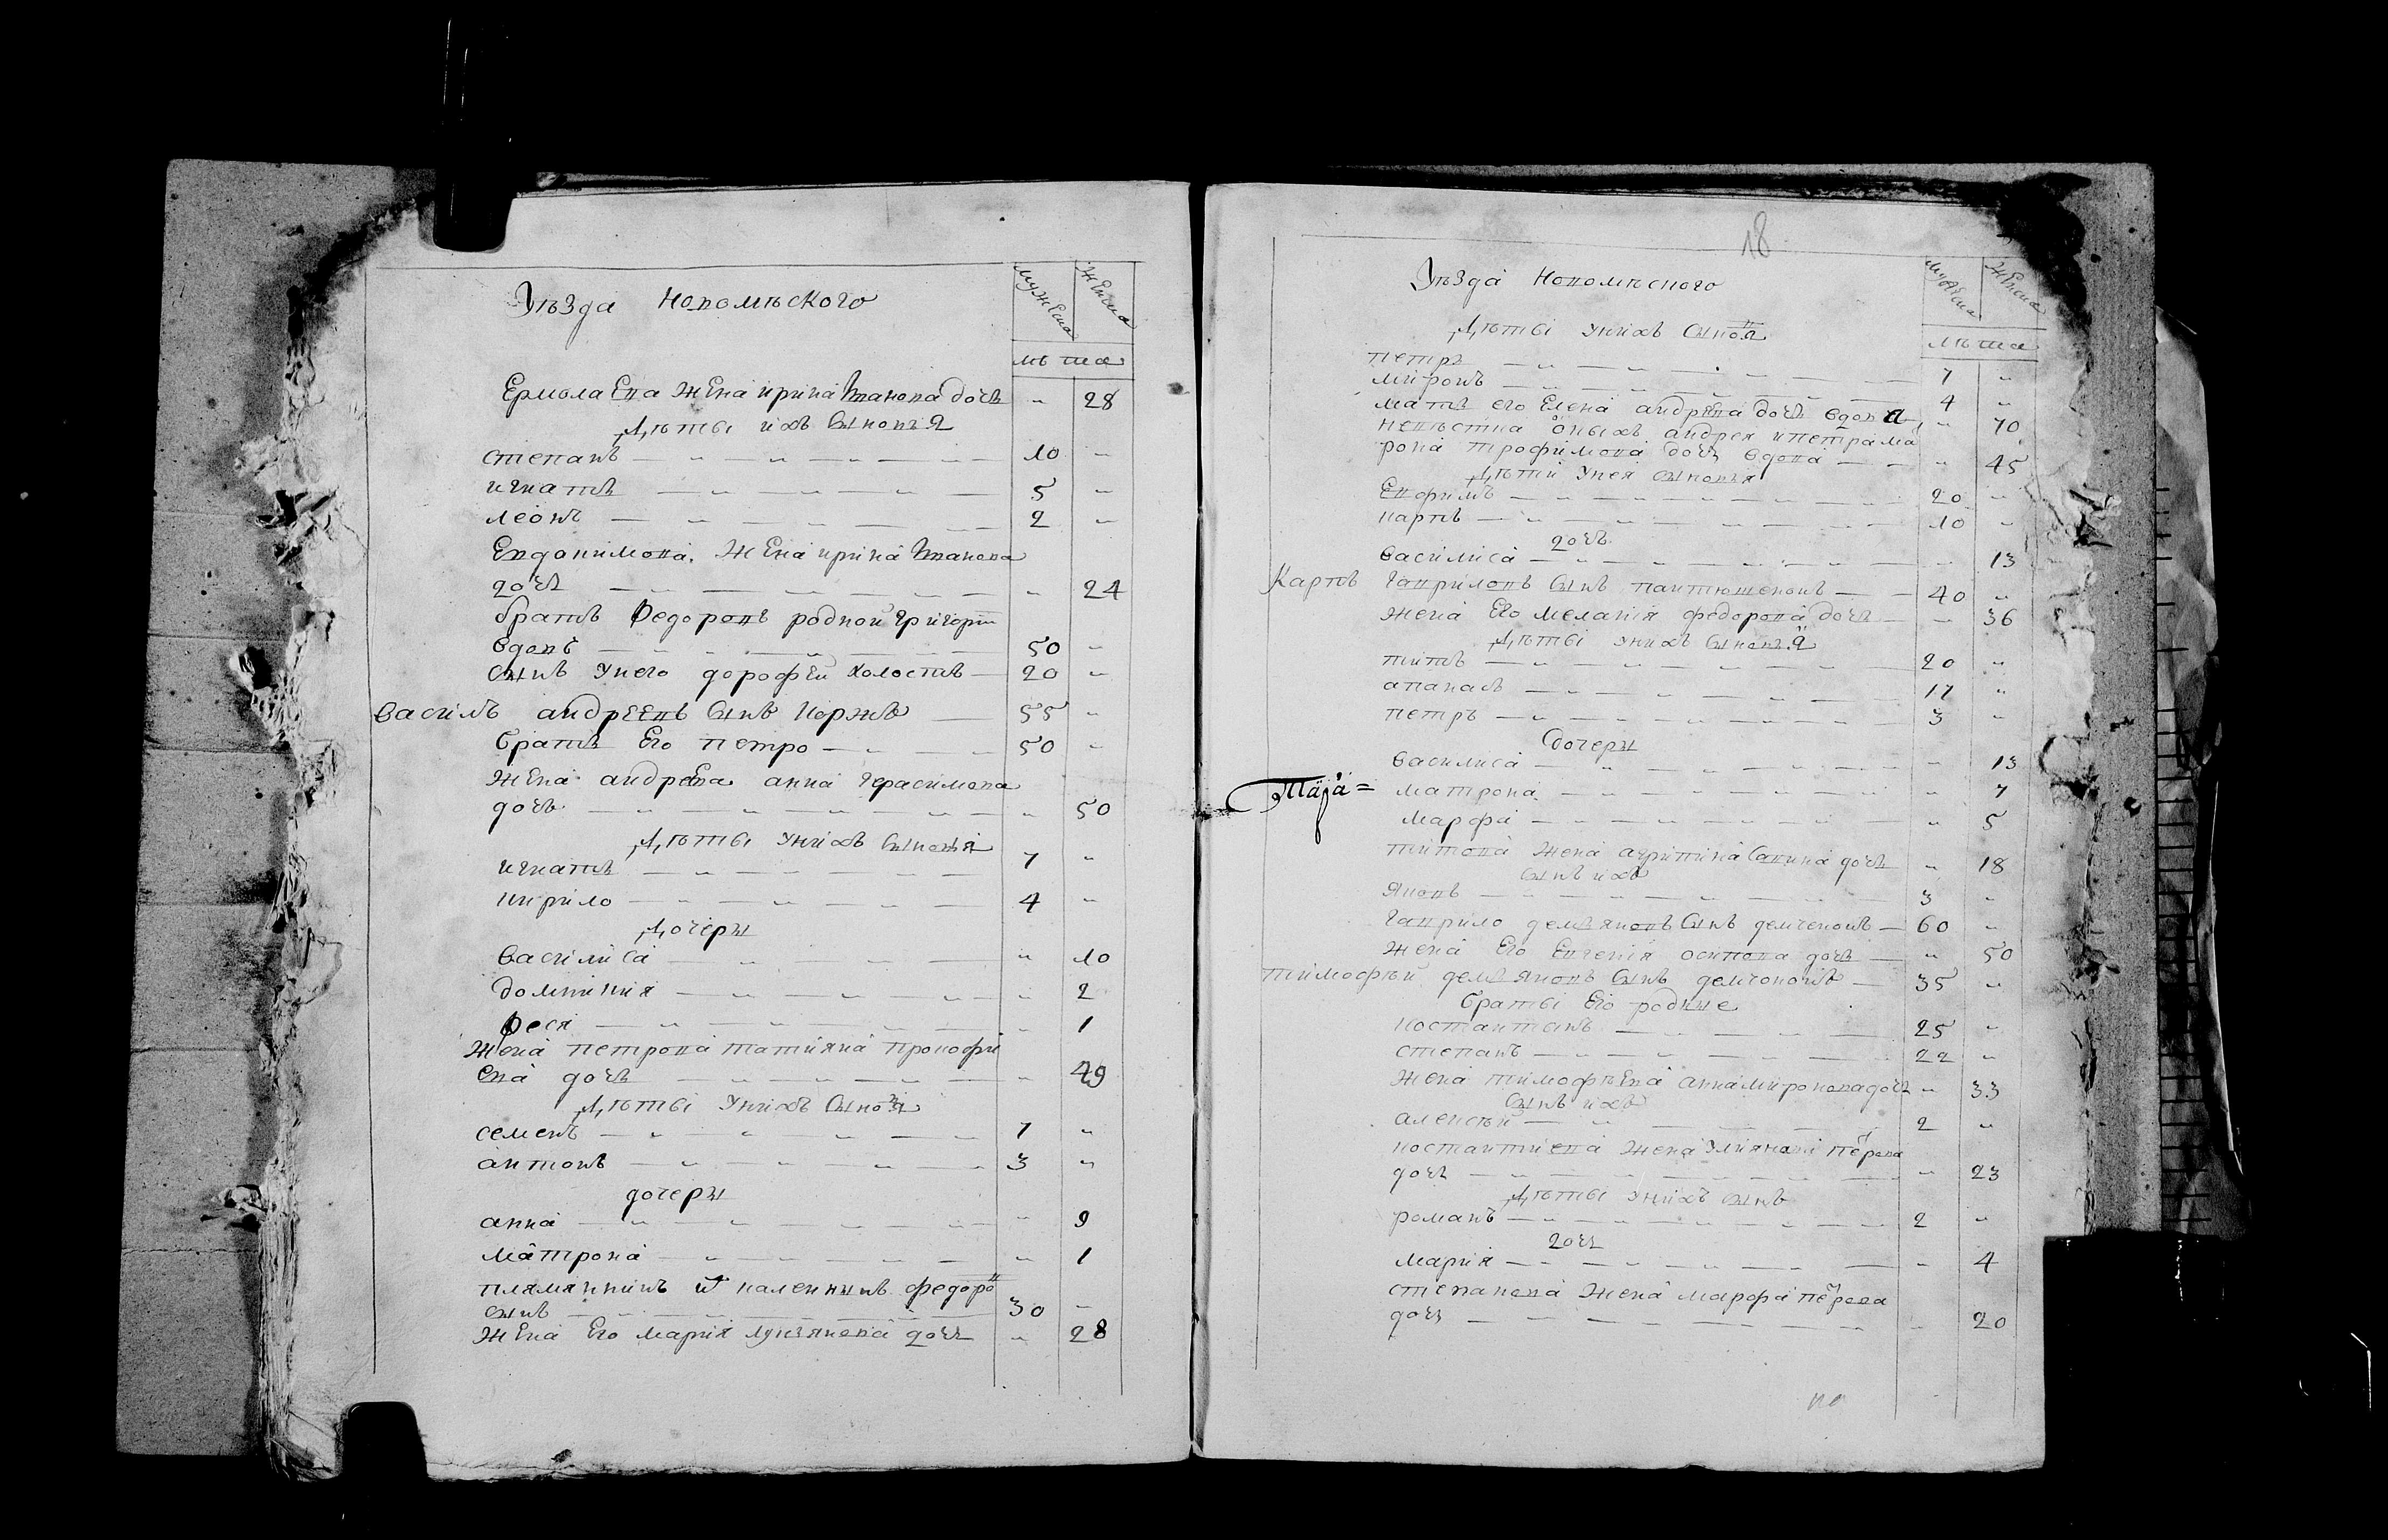 Уѣзда новомѣского
мужеска
женска
лѣта
Ермолаева жена ирина Иванова дочь " 28
Дѣти ихъ сыновья
степанъ 10 "
игнатъ 5 "
леонъ 2 "
Евдокимова жена ирина Иванова
дочь " 24
братъ Федоровъ родной григори
вдовъ 50 "
сынъ у него дорофей холостъ 20 "
василь андреевъ сынъ коржъ 55 "
братъ его петро 50 "
жена андрева анна герасимова
дочь " 50
Дѣти у нихъ сыновья
игнатъ 7 "
кирило 4 "
Дочеры
василиса " 10
домникия " 2
феся " 1
жена петрова татияна прокофи
ева дочь " 49
Дѣти у нихъ сыновя
семенъ 7 "
антонъ 3 "
дочеры
анна " 9
матрона " 1
плямянникъ
федоро
сынъ 30 "
жена его мария лукьянова дочь " 28
18
Уѣзда новомѣского
мужеска
женска
лѣта
Дѣти у нихъ сыновя
петръ 7 "
миронъ 4 "
мать его елена андрева дочь вдова " 70
невѣстка оныхъ андрея и петра мат
рона трофимова дочь вдова " 45
Дѣти у нея сыновья
Евфимъ 20 "
карпъ 10 "
дочь
василиса " 13
Карпъ гавриловъ сынъ пантюшенокъ 40 "
жена его мелания федорова дочь " 36
Дѣти у нихъ сыновья
титъ 20 "
апанасъ 17 "
петръ 3 "
дочеры
василиса " 13
матрона " 7
марфа " 5
титова жена агрипина савина дочь " 18
сынъ ихъ
яковъ 3 "
гаврило демьяновъ сынъ демченокъ 60 "
жена его Евгения осипова дочь " 50
тимофѣй демьяновъ сынъ демчонокъ 35 "
браты его родные
костантинъ 25 "
степанъ 22 "
жена тимофѣева анна миронова дочь " 33
сынъ ихъ
алексѣй 2 "
костантиева жена улияна петрова
дочь " 23
Дѣти у нихъ сынъ
романъ 2 "
дочь
мария " 4
степанова жена марфа петрова
дочь " 20